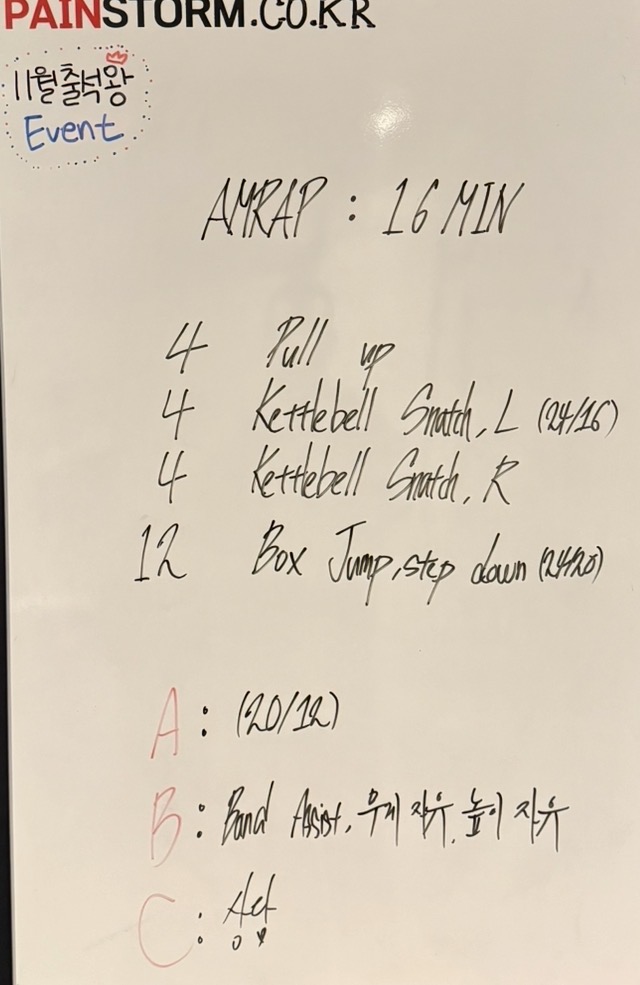 PAINSTORM.CO.KR
11월 출석왕
Event
AMRAP : 16 MIN
4 Pull up
4 Kettlebell Snatch, L (24/16)
4 Kettlebell Snatch, R
12 Box Jump, step down (24/20)
A : (20/12)
B : Band Assist, 무게 자유, 높이 자유
C : 상담